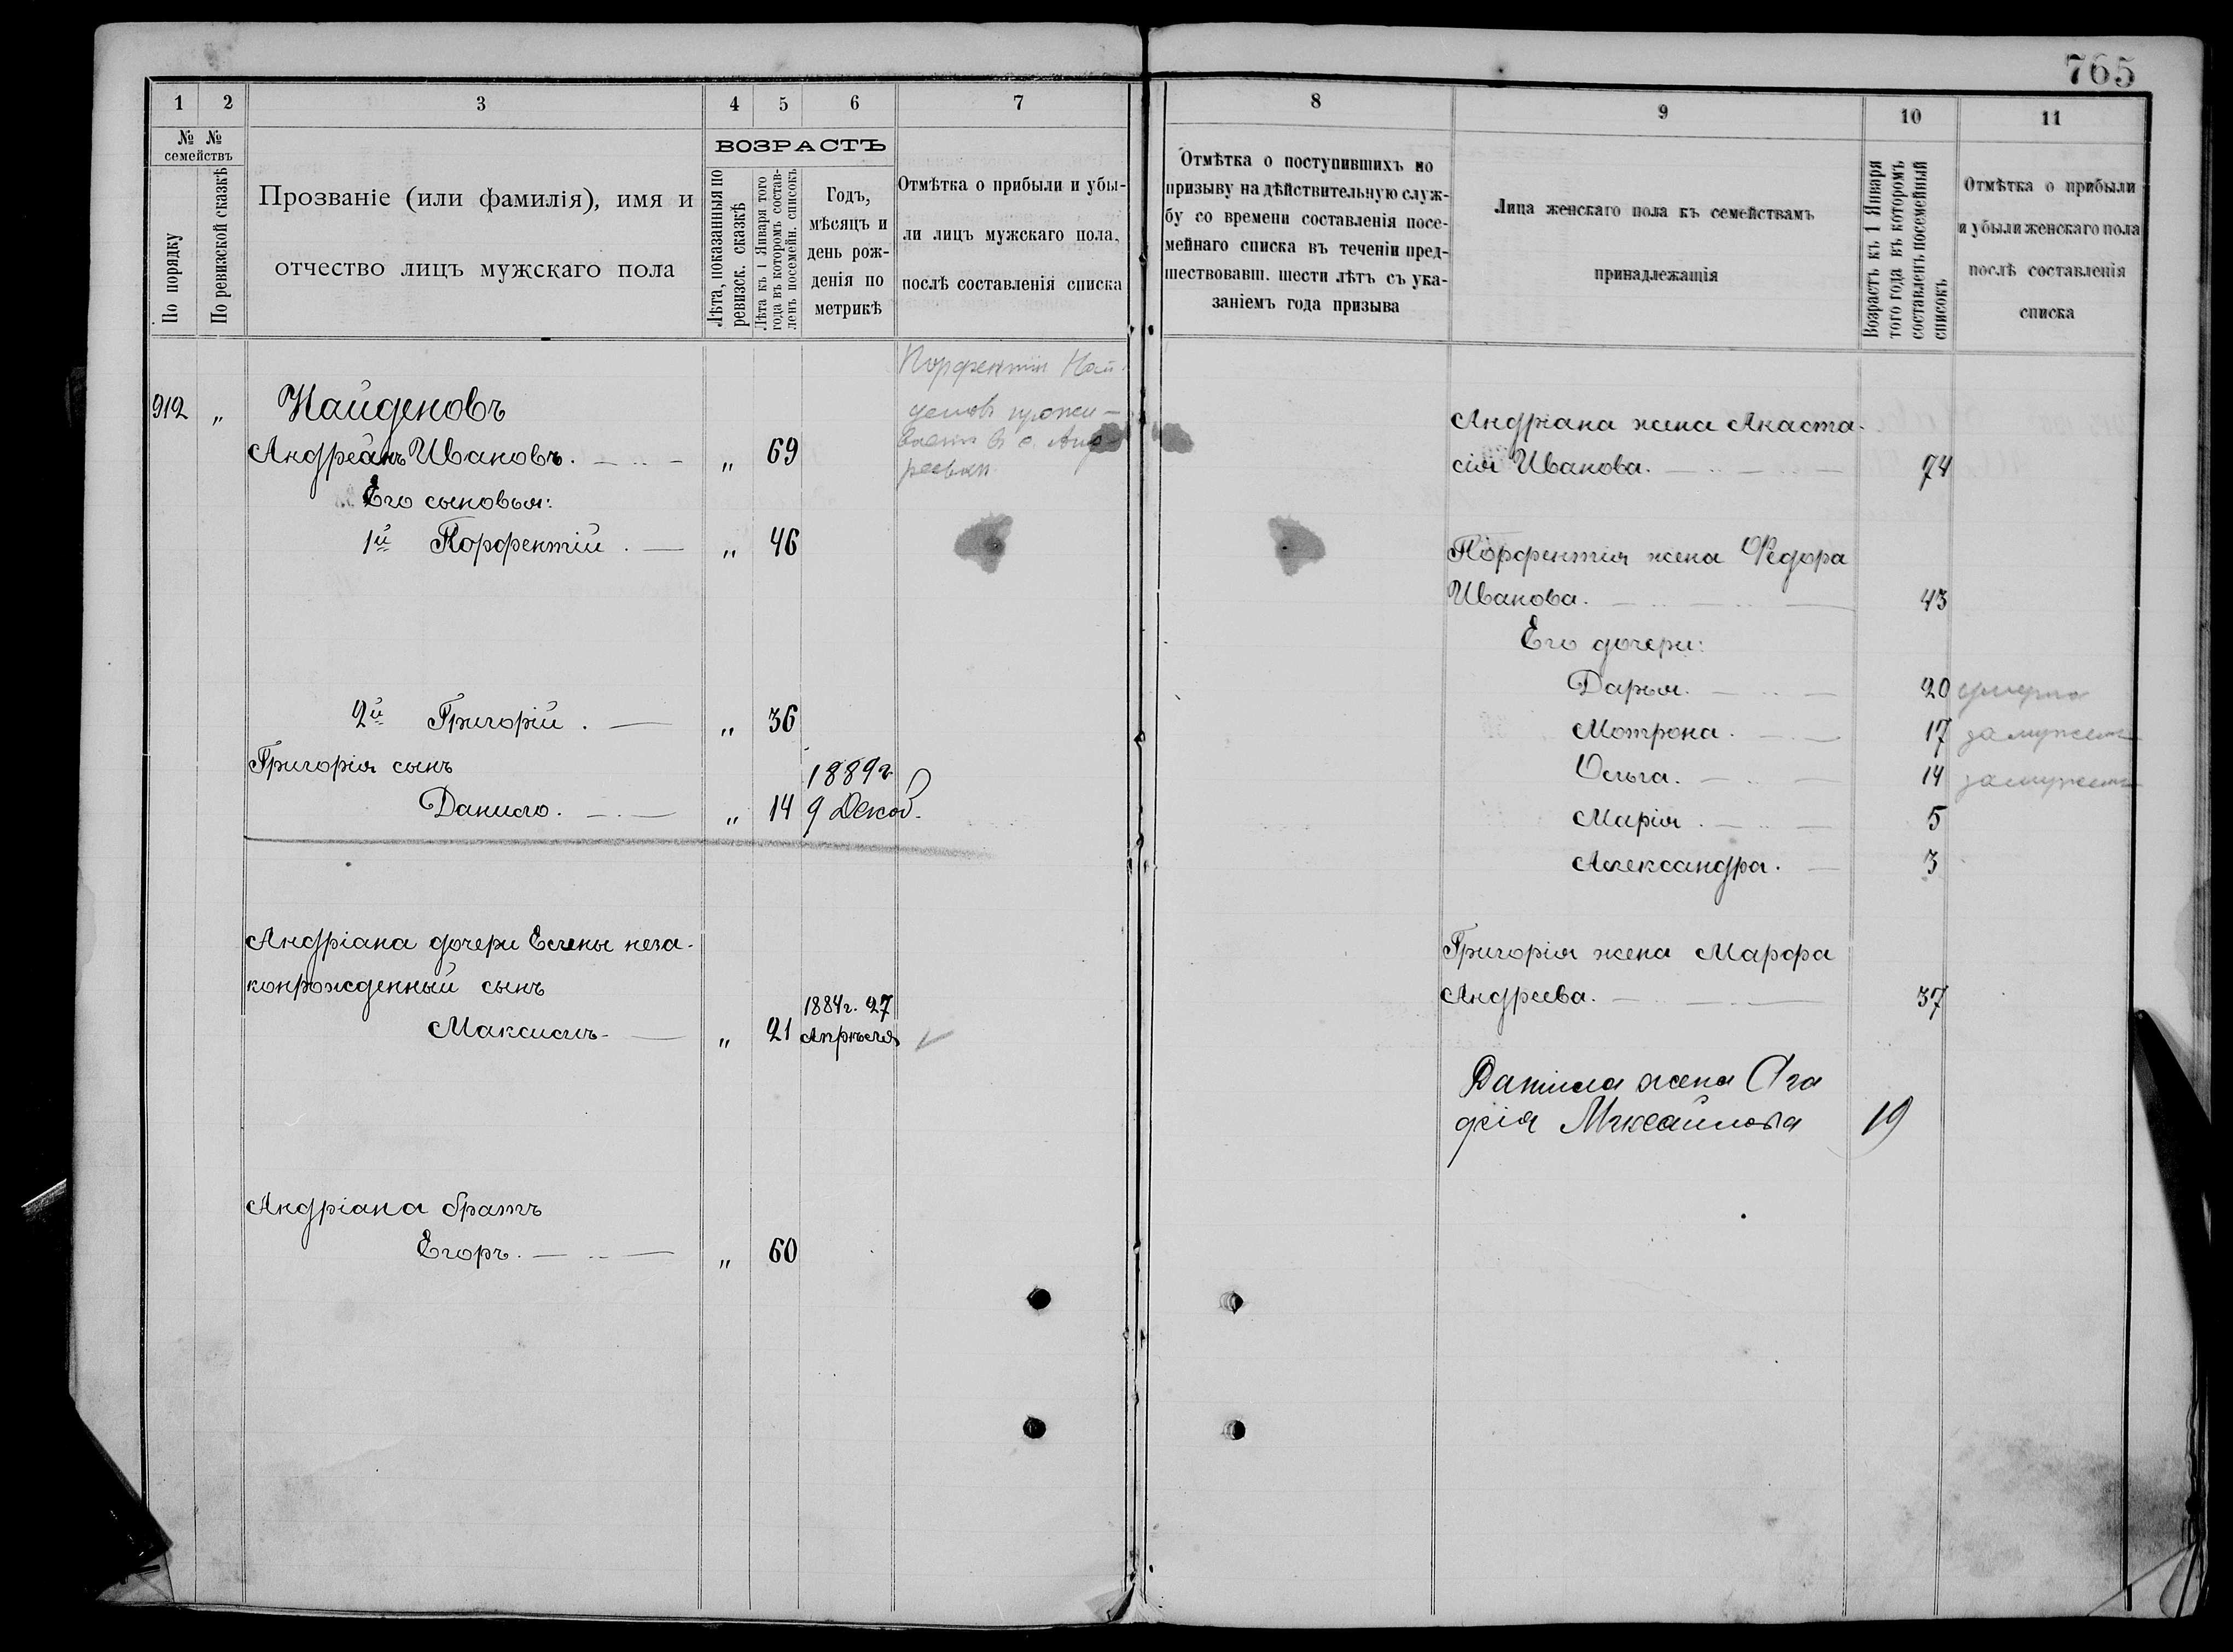 765
1 2 3 4 5 6 7
№ №
семействъ
По порядку
По ревизской сказкѣ
Прозваніе (или фамилія), имя и
отчество лицъ мужскаго пола
ВОЗРАСТЪ
Лѣта, показанныя по
ревизск. сказкѣ
Лѣта къ 1 Января того
года въ которомъ состав-
ленъ посемейн. списокъ
Годъ,
мѣсяцъ и
день рож-
денія по
метрикѣ
Отмѣтка о прибыли и убы-
ли лицъ мужскаго пола,
послѣ составленія списка
Порфентій Най-
912 „ Найденовъ
деновъ прожи-
ваетъ в с. Анд-
Андреанъ Ивановъ. „ 69
реевки
Его сыновья:
1й Порфентій. „ 46
2й Григорій. „ 36
Григорія сынъ 1889г.
Данило. „ 14 9 Декаб.
Андріана дочери Елены неза-
конрожденный сынъ
1884г. 27
Максимъ „ 21 Апрѣля
Андріана братъ
Егоръ. „ 60
8 9 10 11
Отмѣтка о поступившихъ по
призыву на дѣйствительную служ-
бу со времени составленія посе-
мейнаго списка въ теченіи пред-
шествовавш. шести лѣтъ съ ука-
заніемъ года призыва
Лица женскаго пола къ семействамъ
принадлежащія
Возрастъ къ 1 Января
того года въ которомъ
составленъ посемейный
списокъ
Отмѣтка о прибыли
и убыли женскаго пола
послѣ составленія
списка
Андріана жена Анаста-
сія Иванова. 74
Порфентія жена Федора
Иванова. 43
Его дочери:
Дарья. 20 умерла
Мотрона. 17 замужем
Ольга. 14 замужем
Марія. 5
Александра. 3
Григорія жена Марфа
Андреева. 37
Данила жена Ага
фія Михайлова 19